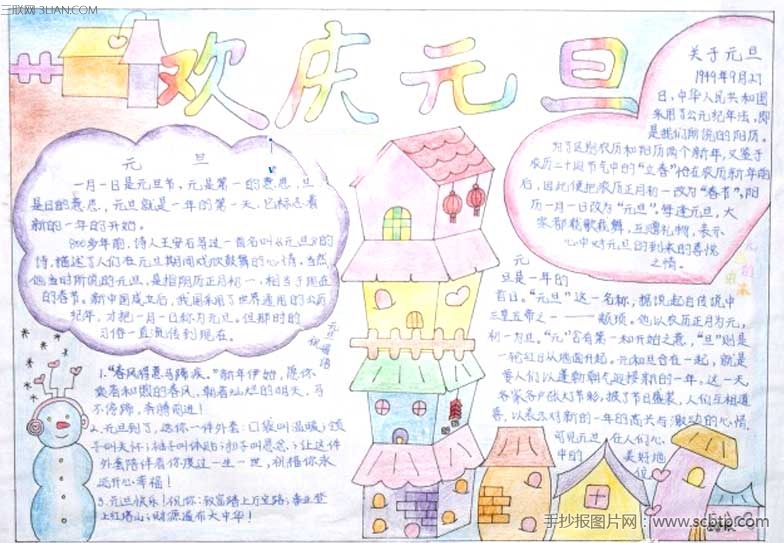 三联网 3LIAN.COM
欢庆元旦
元 旦
一月一日是元旦节,元是第一的意思,旦
是日的意思,元旦就是一年的第一天,它标志着
新的一年的开始。
800多年前,诗人王安石写过一首名叫《元旦》的
诗,描述了人们在元旦期间欢欣鼓舞的心情,当然
他当时所说的元旦,是指阴历正月初一,相当于现在
的春节。新中国成立后,我国采用了世界通用的公历
纪年,才把一月一日称为元旦。但那时的
习俗一直流传到现在。
关于元旦
1949年9月27
日,中华人民共和国
采用了公元纪年法,即
是我们所说的阳历。
为了区别农历和阳历两个新年,又鉴于
农历二十四节气中的“立春”恰在农历新年前
后,因此便把农历正月初一改为“春节”,阳
历一月一日改为“元旦”。每逢元旦,大
家都载歌载舞,互赠礼物,表示
心中对元旦的到来的喜悦
之情。
元旦祝福语
1.“春风得意马蹄疾。”新年伊始,愿你
乘着和煦的春风,朝着灿烂的明天,马
不停蹄,奔腾前进!
2.元旦到了,送你一件外套:口袋叫温暖;领
子叫关怀;袖子叫体贴;扣子叫思念;让这件
外套陪伴着你度过一生一世,祝福你永
远开心幸福!
3.元旦快乐!祝你:致富踏上万宝路;事业登
上红塔山;财源遍布大中华!
元
旦是一年的
首日。“元旦”这一名称,据说起自传说中
三皇五帝之一——颛顼。他以农历正月为元,
初一为旦。“元”含有第一和开始之意,“旦”则是
一轮红日从地面升起。元和旦合在一起,就是
要人们以蓬勃朝气迎接新的一年,这一天
各家各户张灯节彩,披了节日盛装,人们互相道
喜,以表示对新的一年的高兴与激动的心情,
可见元旦在人们心
中的美好地
位
手抄报图片网:www.scbtp.com